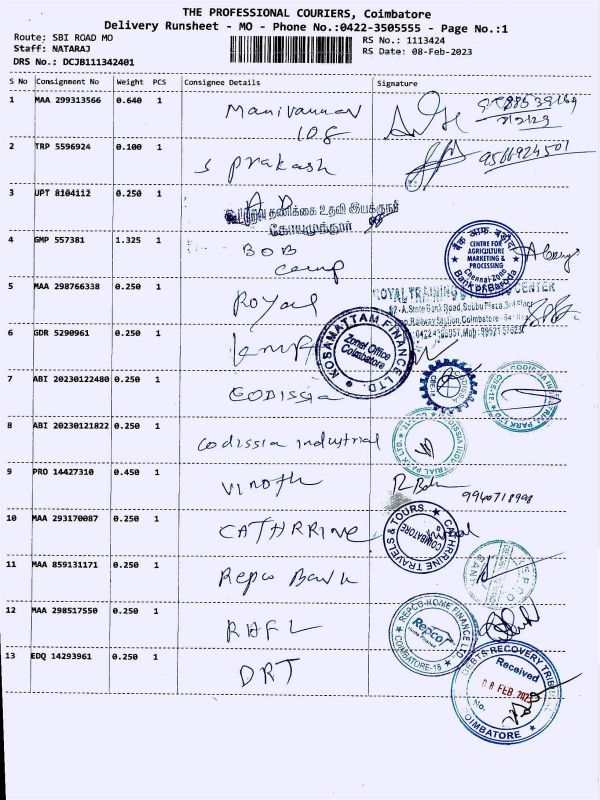 THE PROFESSIONAL COURIERS, Coimbatore
Delivery Runsheet - MO - Phone No.:0422-3505555 - Page No.:1
Route: SBI ROAD MO
RS No.: 1113424
Staff: NATARAJ
RS Date: 08-Feb-2023
DRS No.: DCJB111342401
S No Consignment No Weight PCS Consignee Details Signature
1 MAA 299313566 0.640 1 Manivannan
108
2 TRP 5596924 0.100 1 S Prakash 9566924501
3 UPT 8104112 0.250 1 A D
தணிக்கை உதவி இயக்குநர்
கோயமுத்தூர்
4 GMP 557381 1.325 1 BOB
Camp
CENTRE FOR
AGRICULTURE
MARKETING &
PROCESSING
Bank of Baroda
5 MAA 298766338 0.250 1 Royal
ROYAL TRAINING CENTER
State Bank Road, Coimbatore
6 GDR 5290961 0.250 1
KOSAMATTAM FINANCE LTD.
Zonel Office
Coimbatore
7 ABI 20230122480 0.250 1 CODISSIA
CODISSIA INDUSTRIAL PARK LTD
8 ABI 20230121822 0.250 1 Codissia industrial
CODISSIA INDUSTRIAL PARK LTD
9 PRO 14427310 0.450 1 Vinoth
9940718998
10 MAA 293170087 0.250 1 CATHRRINE
CATHRRINE TRAVELS & TOURS
COIMBATORE
11 MAA 859131171 0.250 1 Repco Bank
REPCO BANK
12 MAA 298517550 0.250 1 RHFL
REPCO HOME FINANCE LTD
Repco
Home Finance
COIMBATORE-18
13 EDQ 14293961 0.250 1 DRT
DEBTS RECOVERY TRIBUNAL
Received
08 FEB 2023
No.
COIMBATORE